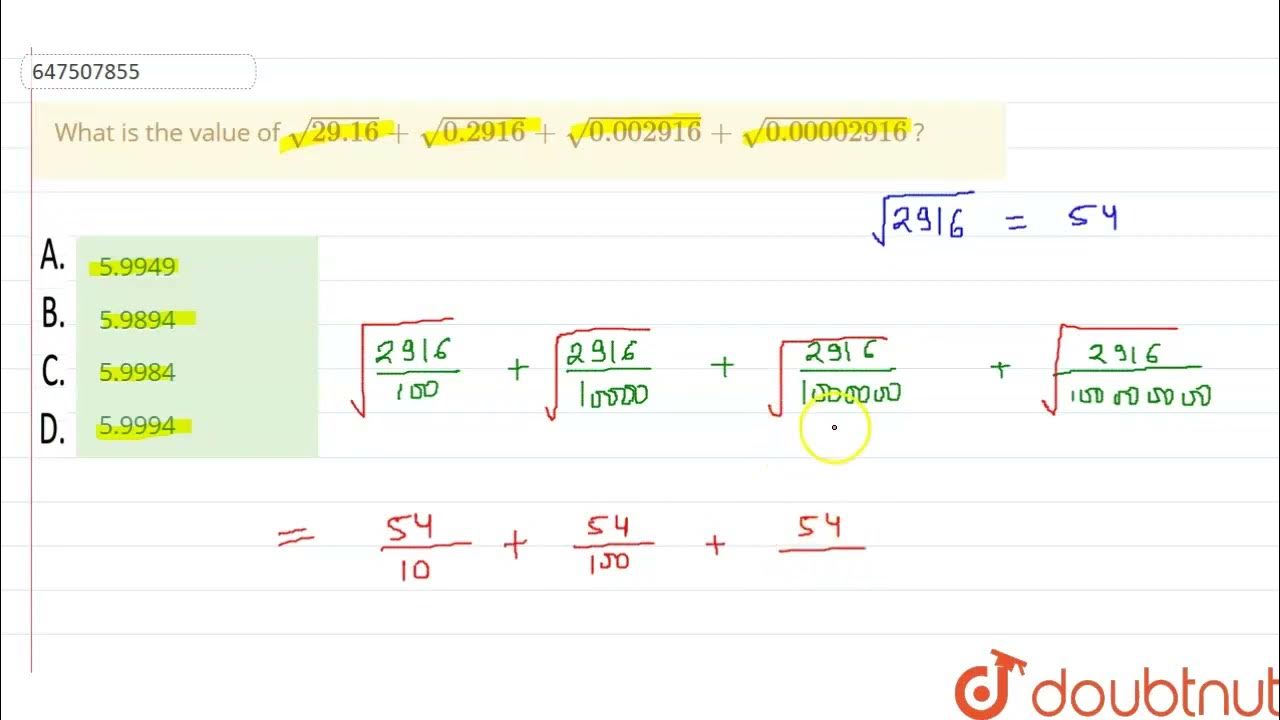 647507855
What is the value of √29.16 + √0.2916 + √0.002916 + √0.00002916 ?
√2916 = 54
A. 5.9949
B. 5.9894
C. 5.9984
D. 5.9994
√(2916/100) + √(2916/10000) + √(2916/1000000) + √(2916/100000000)
= 54/10 + 54/100 + 54/
doubtnut